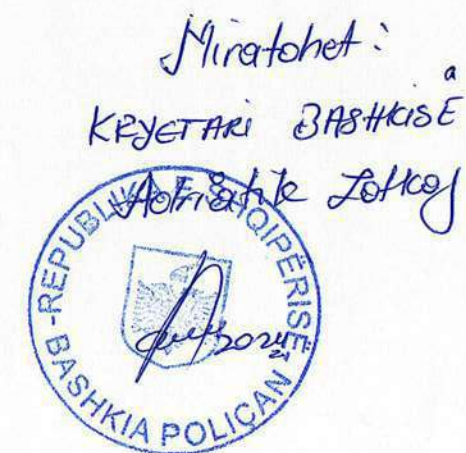 Miratohet:
KRYETARI BASHKISË
Adriatik Zotkaj
REPUBLIKA E SHQIPËRISË
BASHKIA POLIÇAN